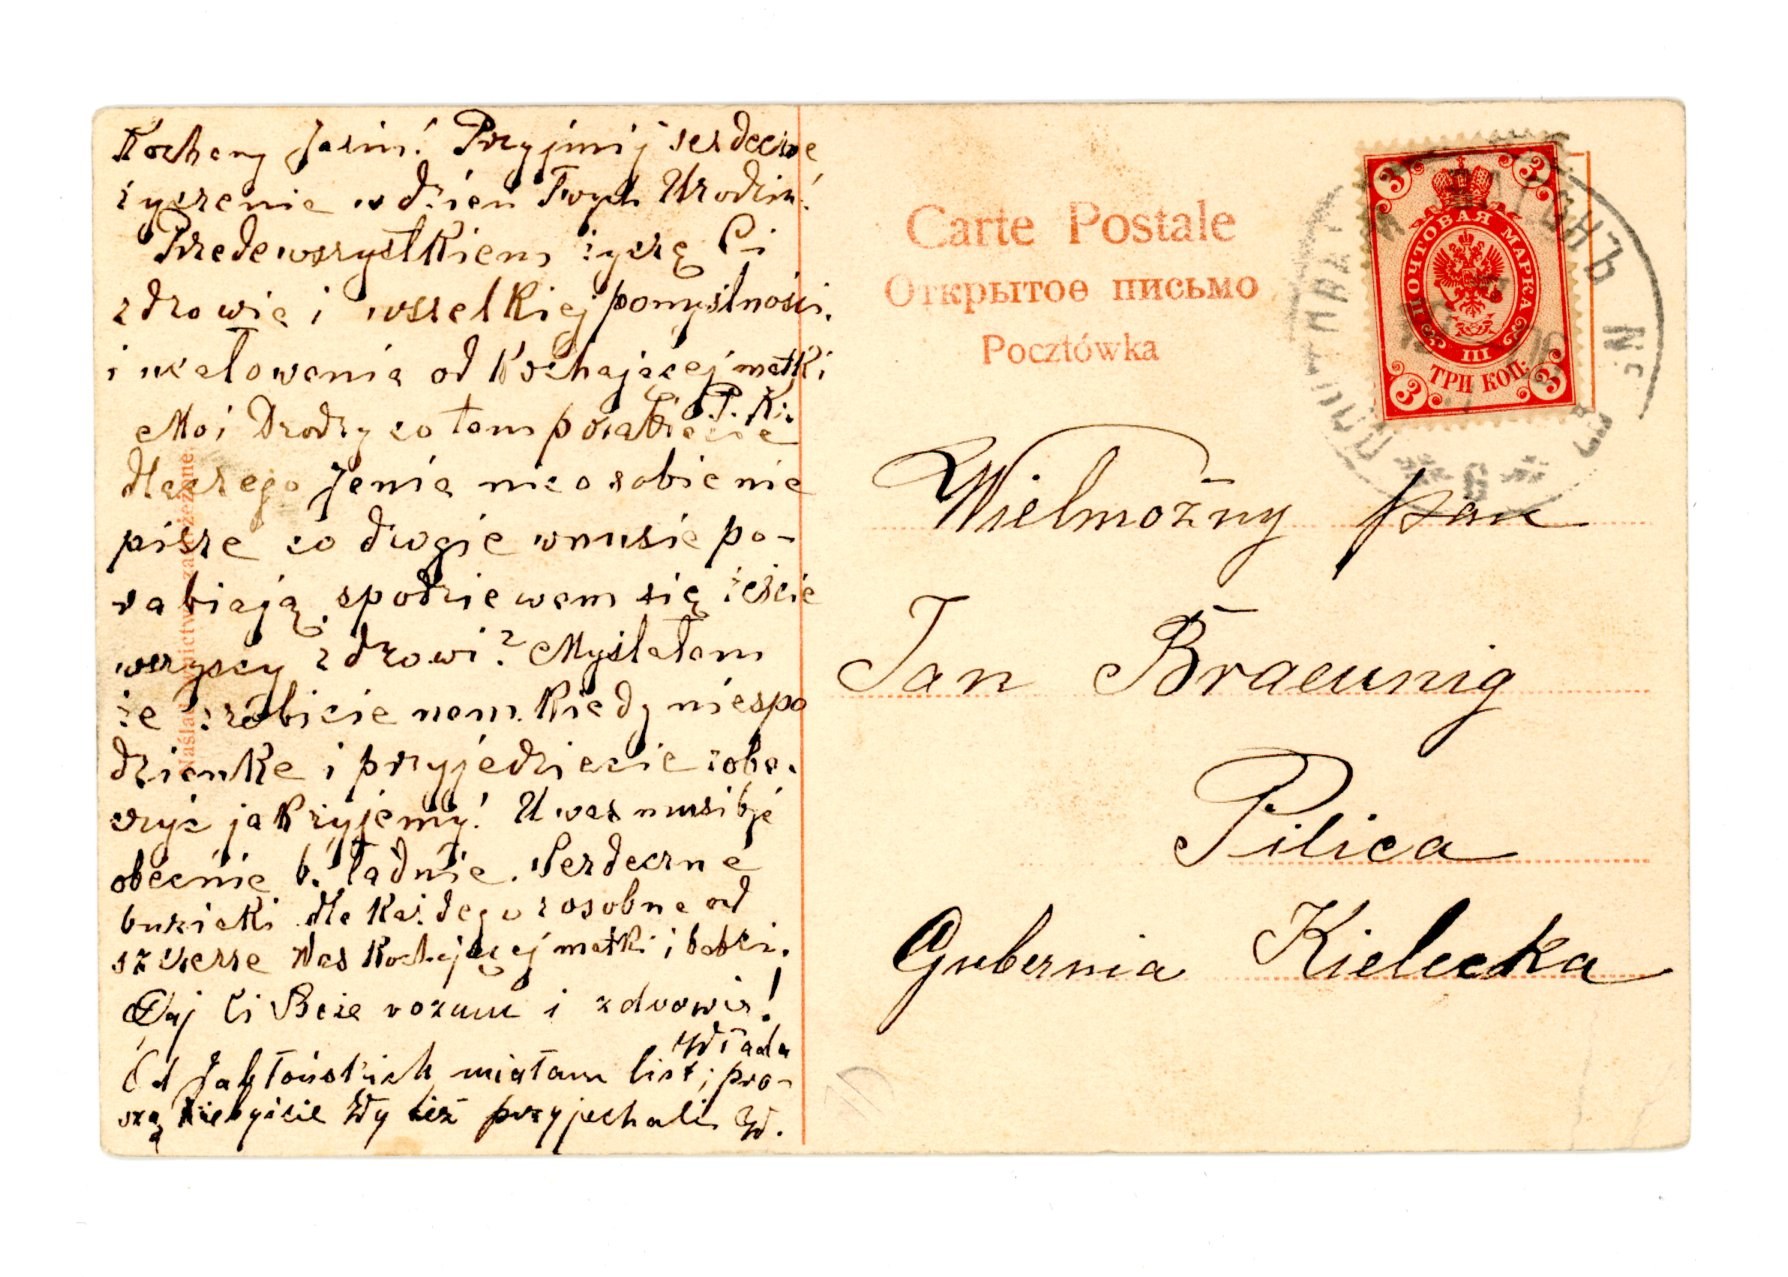 Kochany Jasiu! Przyjmij serdeczne
życzenia w dzień Twych Urodzin!
Przedewszystkiem życzę Ci
zdrowia i wszelkiej pomyślności.
i ucałowania od Kochającej matki
P. Ki.
Moi Drodzy co tam porabiacie
Dlaczego Jania nic o sobie nie
pisze co drogie wnusie po-
rabiają, spodziewam się żeście
wszyscy zdrowi? Myślałam
że zrobicie nam kiedy niespo
dziankę i przyjedziecie zoba-
czyć jak żyjemy! U was musi być
obecnie b. ładnie. Serdeczne
buziaki dla każdego z osobna od
szczerze Was Kochającej matki i babci.
Daj Ci Boże rozum i zdrowia!
Włada
Od Jabłońskich miałam list, pro-
szą żebyście Wy też przyjechali W.
Carte Postale
Открытое письмо
Pocztówka
ПОЧТОВАЯ МАРКА
3 3 3 3
III
ТРИ КОП.
Wielmożny pan
Jan Braeunig
Pilica
Gubernia Kielecka